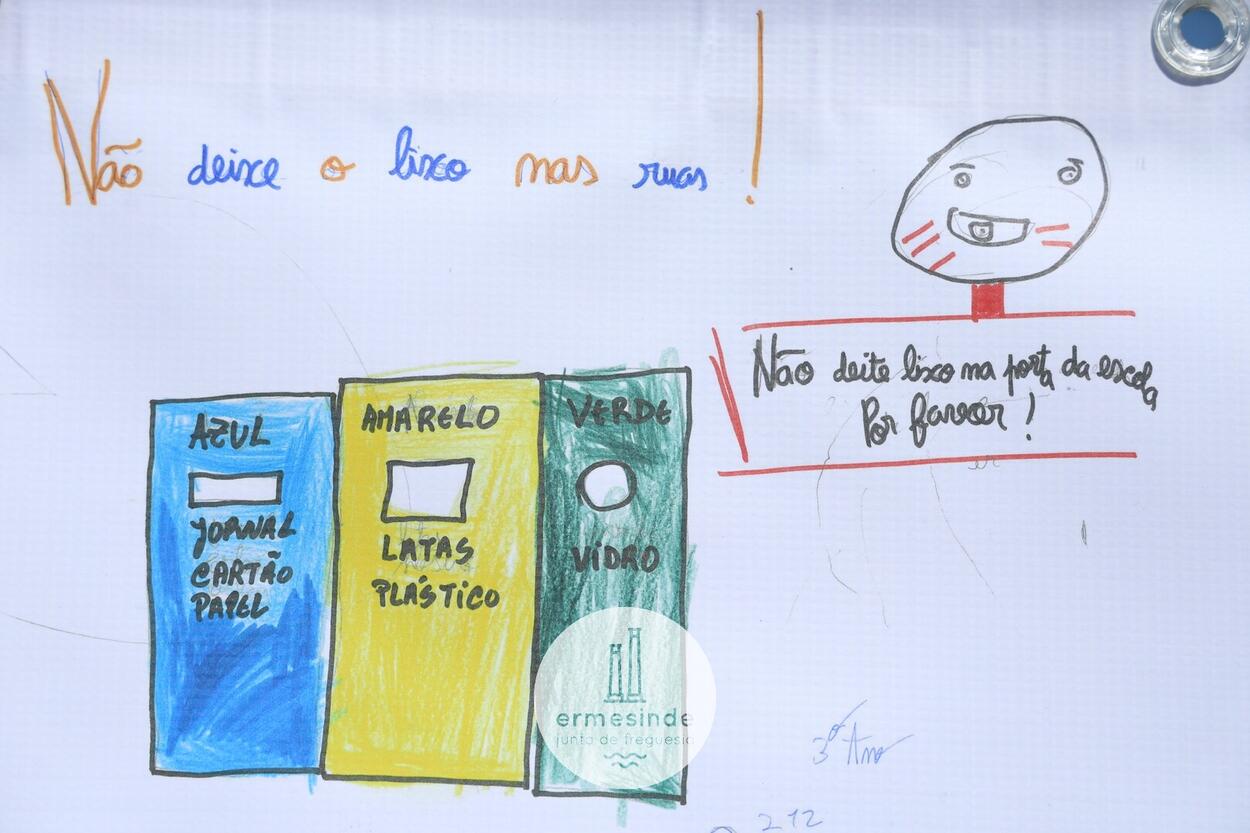 Não deixe o lixo nas ruas !
Não deite lixo na porta da escola
Por favor !
AZUL
JORNAL
CARTÃO
PAPEL
AMARELO
LATAS
PLÁSTICO
VERDE
VIDRO
ermesinde
junta de freguesia
3º Ano
212